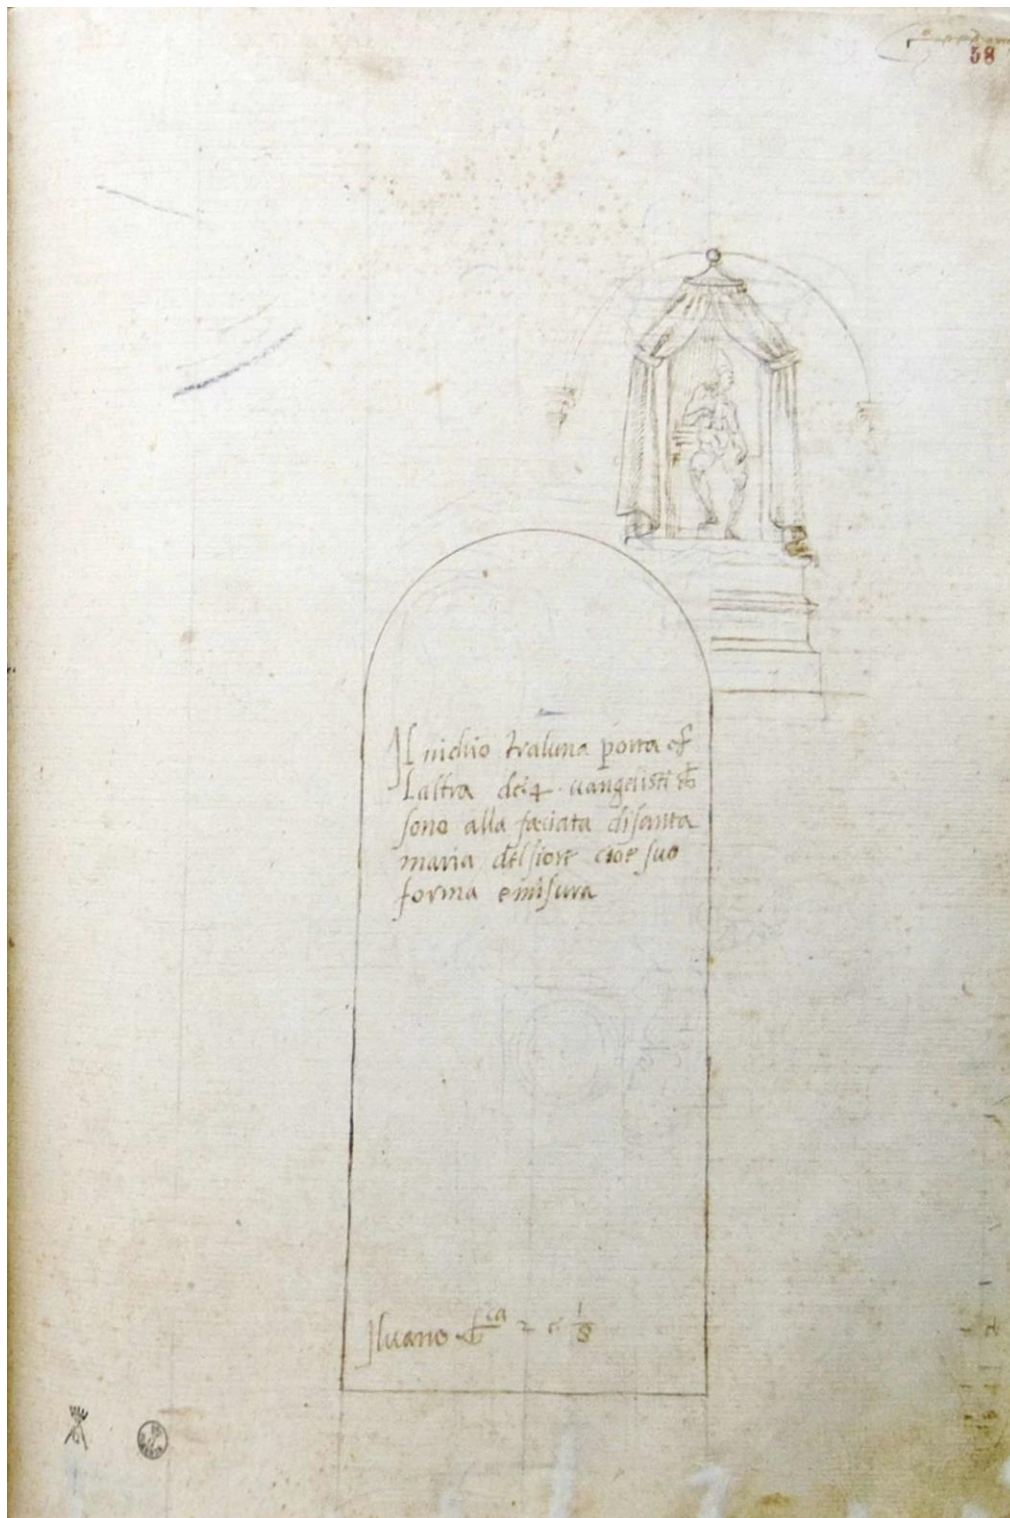 58
Il nichio traluna porta et
Laltra de 4 uangelisti ch
sono alla faciata disanta
maria delfiore cioe suo
forma emisura
Iluano 2 e 1/8